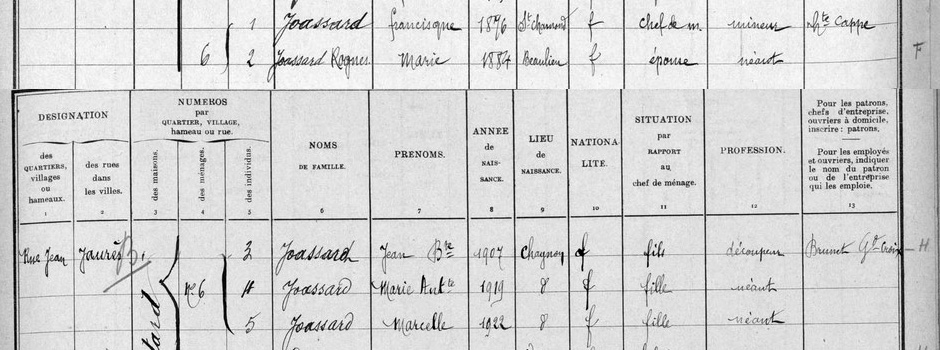 1 Joassard francisque 1876 St chamond f chef de m. mineur Ste Cappe
6 2 Joassard Rognes. Marie 1884 Beaulieu f épouse néant F
DESIGNATION
NUMEROS
par
QUARTIER, VILLAGE,
hameau ou rue.
des
QUARTIERS,
villages
ou
hameaux.
des rues
dans
les villes.
des maisons.
des ménages.
des individus.
NOMS
DE FAMILLE.
PRENOMS.
ANNEE
de
NAIS-
SANCE.
LIEU
de
NAISSANCE.
NATIONA
LITE.
SITUATION
par
RAPPORT
au
chef de ménage.
PROFESSION.
Pour les patrons,
chefs d'entreprise,
ouvriers à domicile,
inscrire : patrons,
Pour les employés
et ouvriers, indiquer
le nom du patron
ou de l'entreprise
qui les emploie.
1 2 3 4 5 6 7 8 9 10 11 12 13
Rue Jean Jaurès 3 Joassard Jean Bte 1907 Chagnon f fils découpeur Brunet Gd Croix H
n. 6 4 Joassard Marie Antte 1919 d f fille néant
5 Joassard Marcelle 1922 d f fille néant